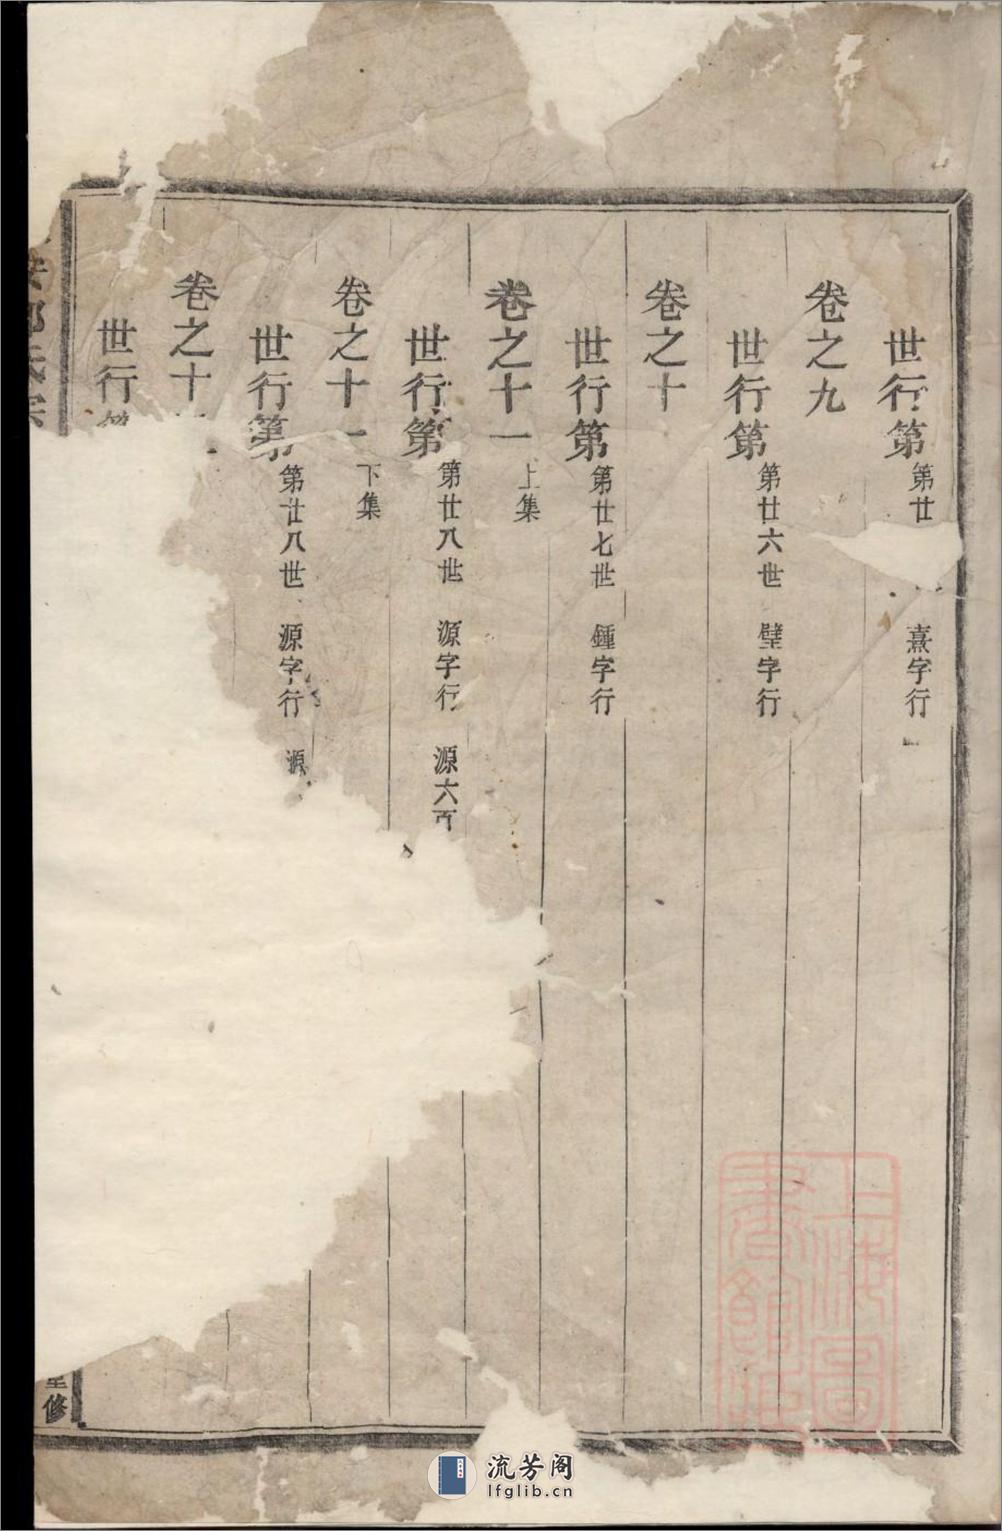 世行第 第廿 熹字行
卷之九
世行第 第廿六世 璧字行
卷之十
世行第 第廿七世 鍾字行
卷之十一 上集
世行第 第廿八世 源字行 源六百
卷之十一 下集
世行第 第廿八世 源字行 源
卷之十
世行
氏宗
堂修
上海圖書館藏
流芳阁
lfglib.cn